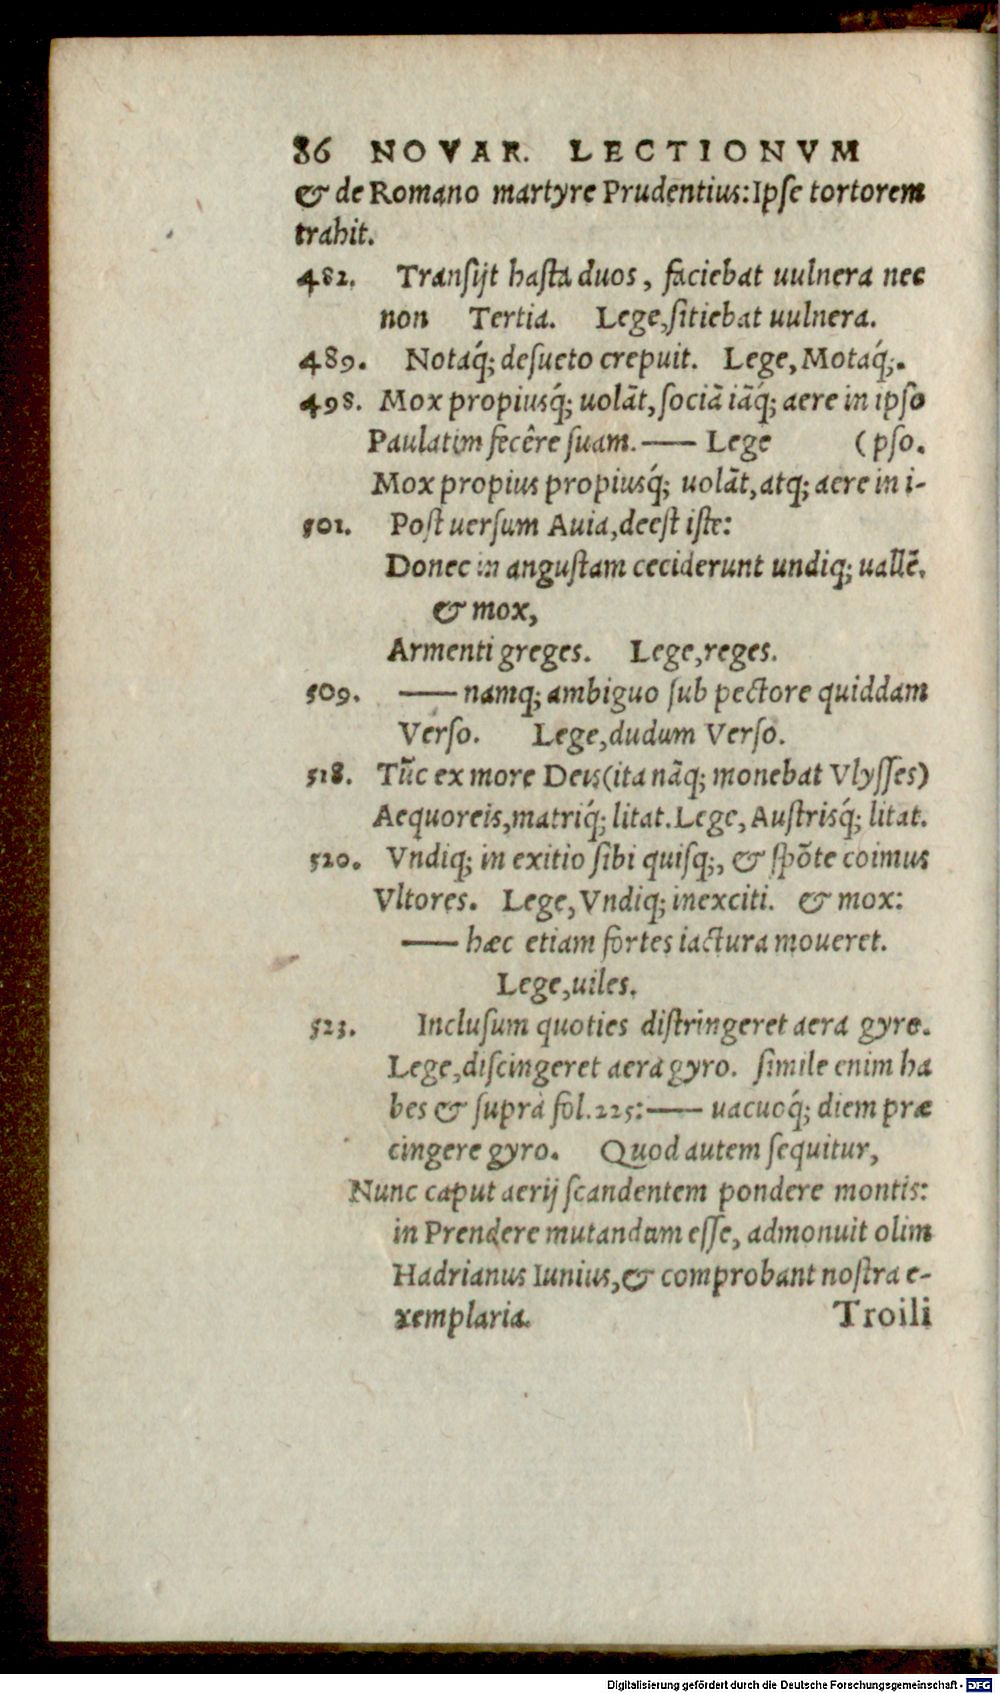 86 NOVAR. LECTIONVM
& de Romano martyre Prudentius: Ipse tortorem
trahit.
482. Transijt hasta duos, faciebat uulnera nec
non Tertia. Lege, sitiebat uulnera.
489. Notaq́; desueto crepuit. Lege, Motaq́;.
498. Mox propiusq́; uolāt, sociā iāq́; aere in ipso
Paulatim fecêre suam. —— Lege (pso.
Mox propius propiusq́; uolāt, atq; aere in i-
501. Post uersum Auia, deest iste:
Donec in angustam ceciderunt undiq; uallē.
& mox,
Armenti greges. Lege, reges.
509. —— namq; ambiguo sub pectore quiddam
Verso. Lege, dudum Verso.
518. Tūc ex more Deis (ita nāq; monebat Vlysses)
Aequoreis, matriq́; litat. Lege, Austrisq́; litat.
520. Vndiq; in exitio sibi quisq;, & spōte coimus
Vltores. Lege, Vndiq; inexciti. & mox:
—— hæc etiam fortes iactura moueret.
Lege, uiles.
523. Inclusum quoties distringeret aera gyro.
Lege, discingeret aera gyro. simile enim ha
bes & suprà fol. 225: —— uacuoq́; diem præ
cingere gyro. Quod autem sequitur,
Nunc caput aerij scandentem pondere montis:
in Prendere mutandum esse, admonuit olim
Hadrianus Iunius, & comprobant nostra e-
xemplaria. Troili
Digitalisierung gefördert durch die Deutsche Forschungsgemeinschaft - DFG